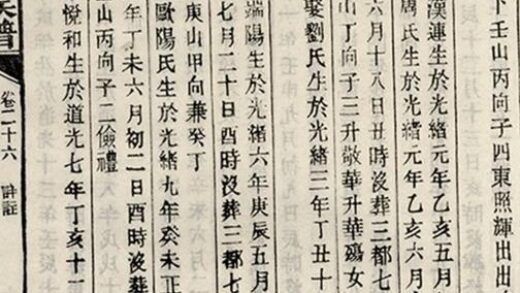 下壬山丙向子四東照輝出出
漢連生於光緒元年乙亥五月
周氏生於光緒元年乙亥六月
六月十八日丑時沒葬三都七
山丁向子三升敬華升華瑒女
娶劉氏生於光緒三年丁丑十
端陽生於光緒六年庚辰五月
七月二十日酉時沒葬三都七
庚山甲向兼癸丁
歐陽氏生於光緒九年癸未正
年丁未六月初二日酉時沒葬
山丙向子二儉禮
悅和生於道光七年丁亥十一
譜
卷二十六